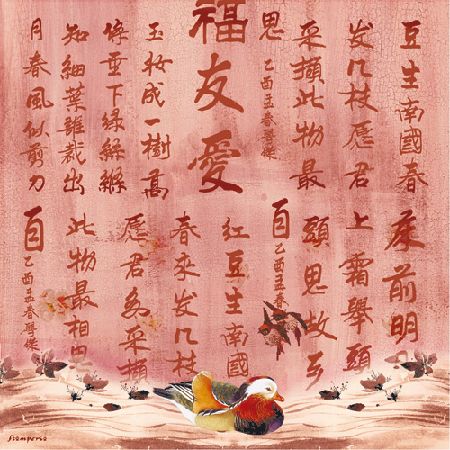 豆生南國春
床前明
发几枝愿君
上霜舉頭
采擷此物最
頭思故乡
思
乙酉孟春
乙酉孟春
福友愛
紅豆生南國
春來发几枝
玉妝成一樹高
愿君多采擷
條垂下绿絲絛
此物最相
知細葉誰裁出
月春風似剪刀
乙酉孟春